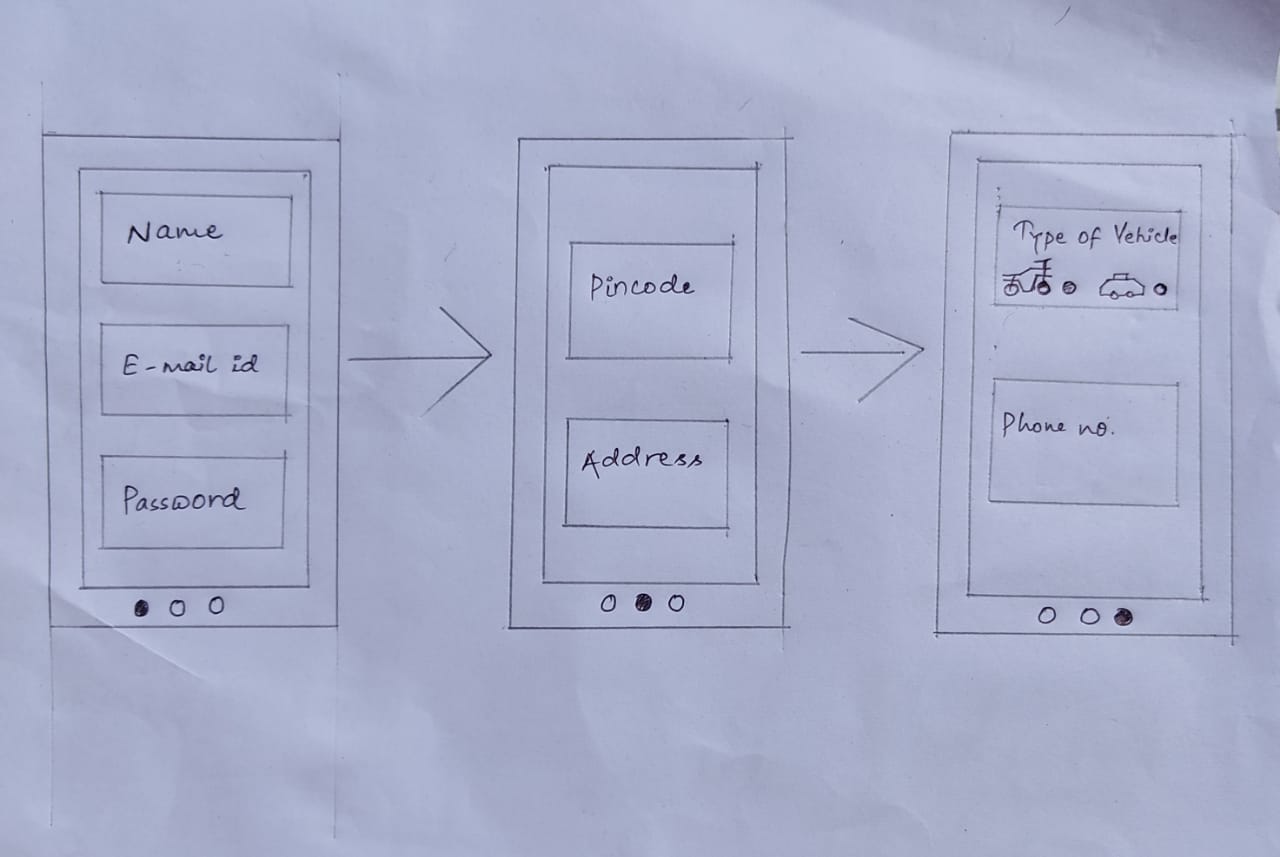 Name
E-mail id
Password
Pincode
Address
Type of Vehicle
Phone no.